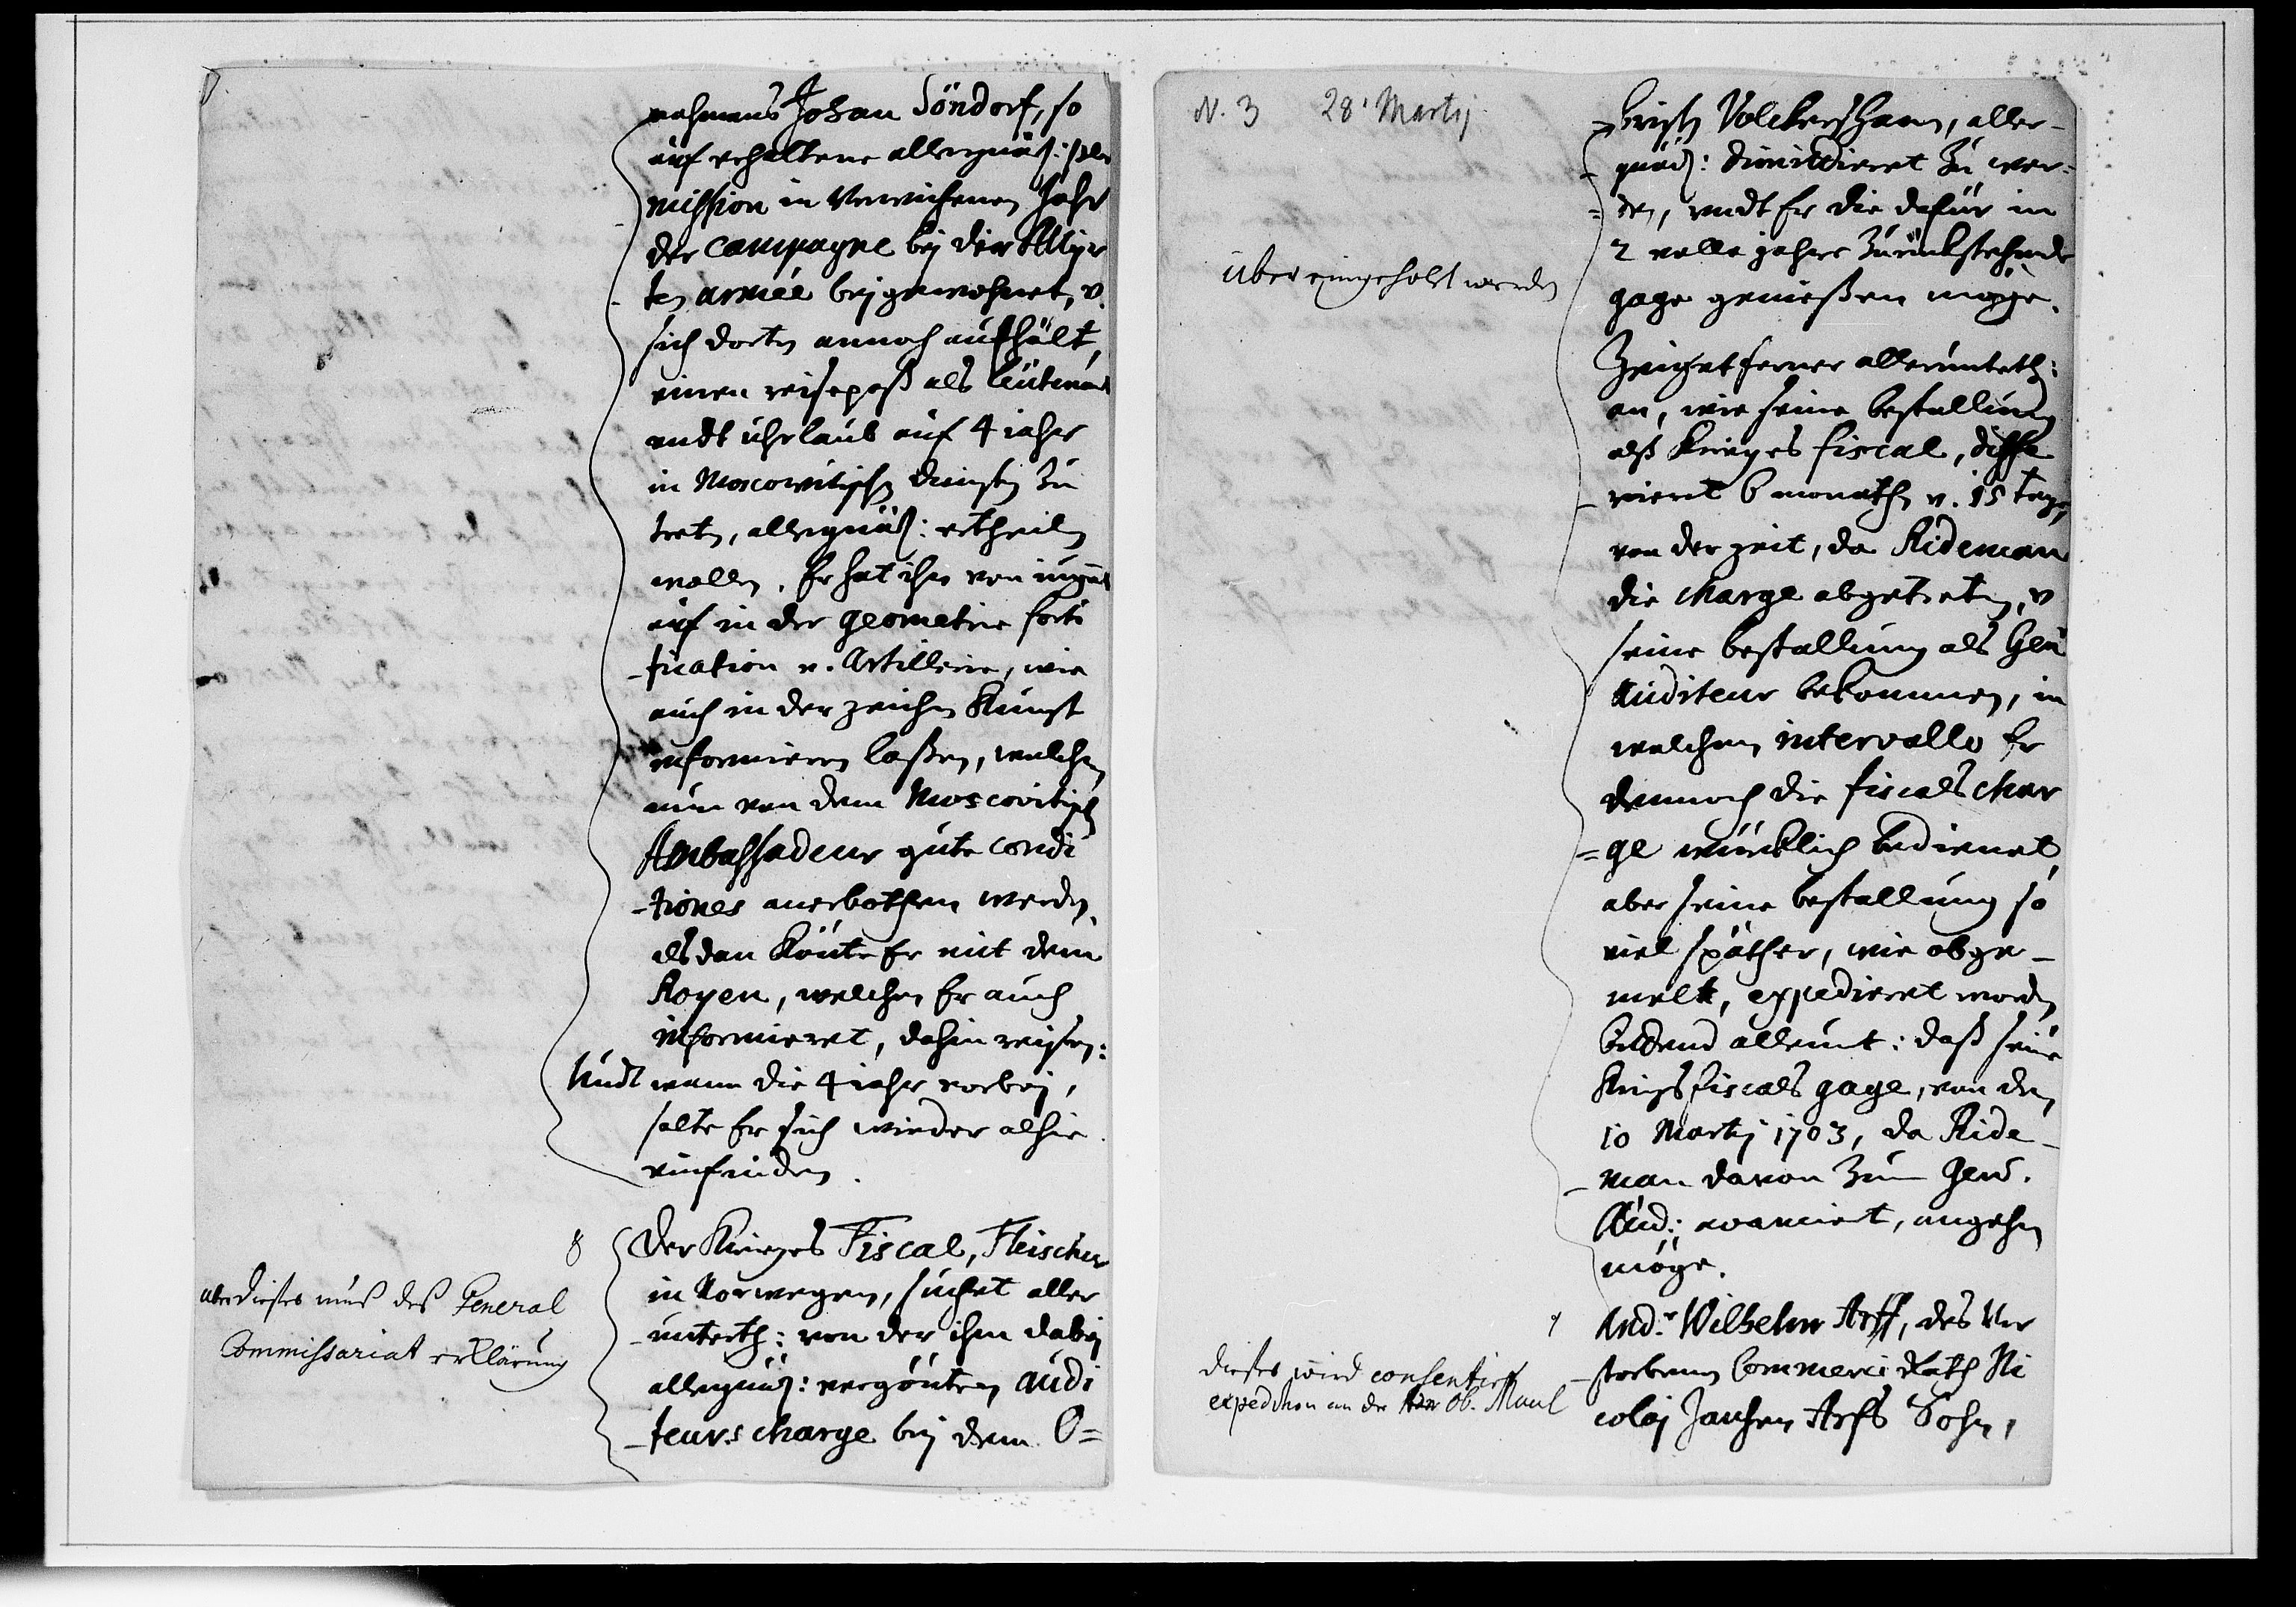 nahmens Johan Söndorf, so
auf erhaltene allergnäd: per
mission in Verwichenen Jahr
der Campagne bei der Alliir
ten armée beÿgewohnet, v.
sich dorten annoch aufhält,
einen reisepaß als Leütenant
undt uhrlaub auf 4 iahr
in Moscowitischen diensten zu
treten, allergnäd: ertheilen
wollen. Er hat ihn von iugend
auf in der Geometrie forti
-fication v. Artillerie, wie
auch in der zeichen Kunst
informieren laßen, welchen
nun von dem Moscovitischen
Ambassadeur gute condi
-tiones anerbothen werden,
alsdan könte Er mit dem
Royen, welchen Er auch
informieret, dahin reisen:
Undt wann die 4 iahr vorbeÿ,
solte Er sich wieder alhie
einfinden.
8
Der Krieges Fiscal, Fleischer
in Norwegen, suchet aller
-unterth: von der ihm dabeÿ
allergnäd: vergönten Audi
-teurs charge beÿ dem O=
über dieses muß deß General
Commissariat erklärung
N. 3 28 Martij
über eingeholt werden
=brist Volckersham, aller-
gnäd: dimittieret zu wer=
=den, undt Er die dafür in
2 volle jahre zurückstehende
gage genießen möge.
Zeiget ferner allerunterth:
an, wie seine bestallung
alß Krieges fiscal, diffe
-rieret 6 monathe v. 15 tage,
von der zeit, da Rideman
die charge abgetreten, v
seine bestallung als Gen
Auditeur bekommen, in
welchem intervallo Er
dennoch die fiscals char
=ge würcklich bedienet,
aber seine bestallung so
viel späther, wie obge-
melt, expedieret worden
Bittend allerunt: daß seine
Kriegs fiscals gage, von den
10 Martij 1703, da Ride-
-man davon zum Gen.
Aud: avanciert, angehen
möge.
9
And. Wilhelm Arff, des Ver
-storbenen Commercie Rath Ni
colaj Jansen Arfs Sohn,
dieses wird consentirt
expedition an der Ob. Maul